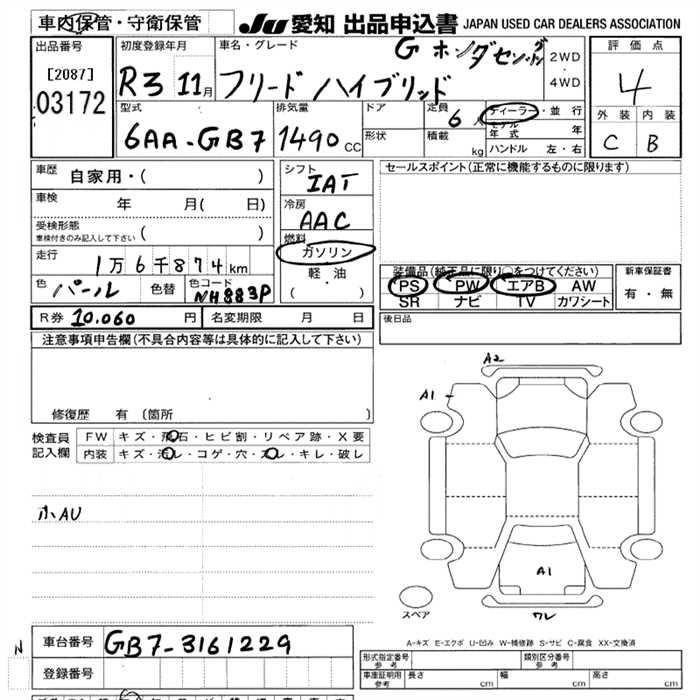 車内保管・守衛保管
JU 愛知 出品申込書 JAPAN USED CAR DEALERS ASSOCIATION
出品番号
[2087]
03172
初度登録年月
R3 11月
車名・グレード
G ホンダセンシング
フリード ハイブリッド
2WD
・
4WD
評価点
4
外装 内装
C B
型式
6AA-GB7
排気量
1490 CC
ドア
形状
定員 6人
積載 kg
ディーラー・並行
モデル年式 年
ハンドル 左・右
車歴 自家用・( )
車検 年 月( 日)
受検形態
車検付きのみ記入して下さい ( )
走行 1万6千874km
色 パール 色替 色コード NH883P
シフト
IAT
冷房
AAC
燃料
ガソリン
軽油
( ・ )
セールスポイント(正常に機能するものに限ります)
装備品(純正品に限り〇をつけてください)
PS PW エアB AW
SR ナビ TV カワシート
新車保証書
有・無
R券 10,060 円 名変期限 月 日
後日品
注意事項申告欄(不具合内容等は具体的に記入して下さい)
修復歴 有 〔箇所 〕
検査員
記入欄
FW キズ・飛石・ヒビ割・リペア跡・X要
内装 キズ・汚レ・コゲ・穴・スレ・キレ・破レ
ホ、AU
A2
A1
A1
スペア
ワレ
A-キズ E-エクボ U-凹み W-補修跡 S-サビ C-腐食 XX-交換済
N
車台番号 GB7-3161229
登録番号
形式指定番号
参考
類別区分番号
参考
車庫証明用
参考
長さ cm 幅 cm 高さ cm